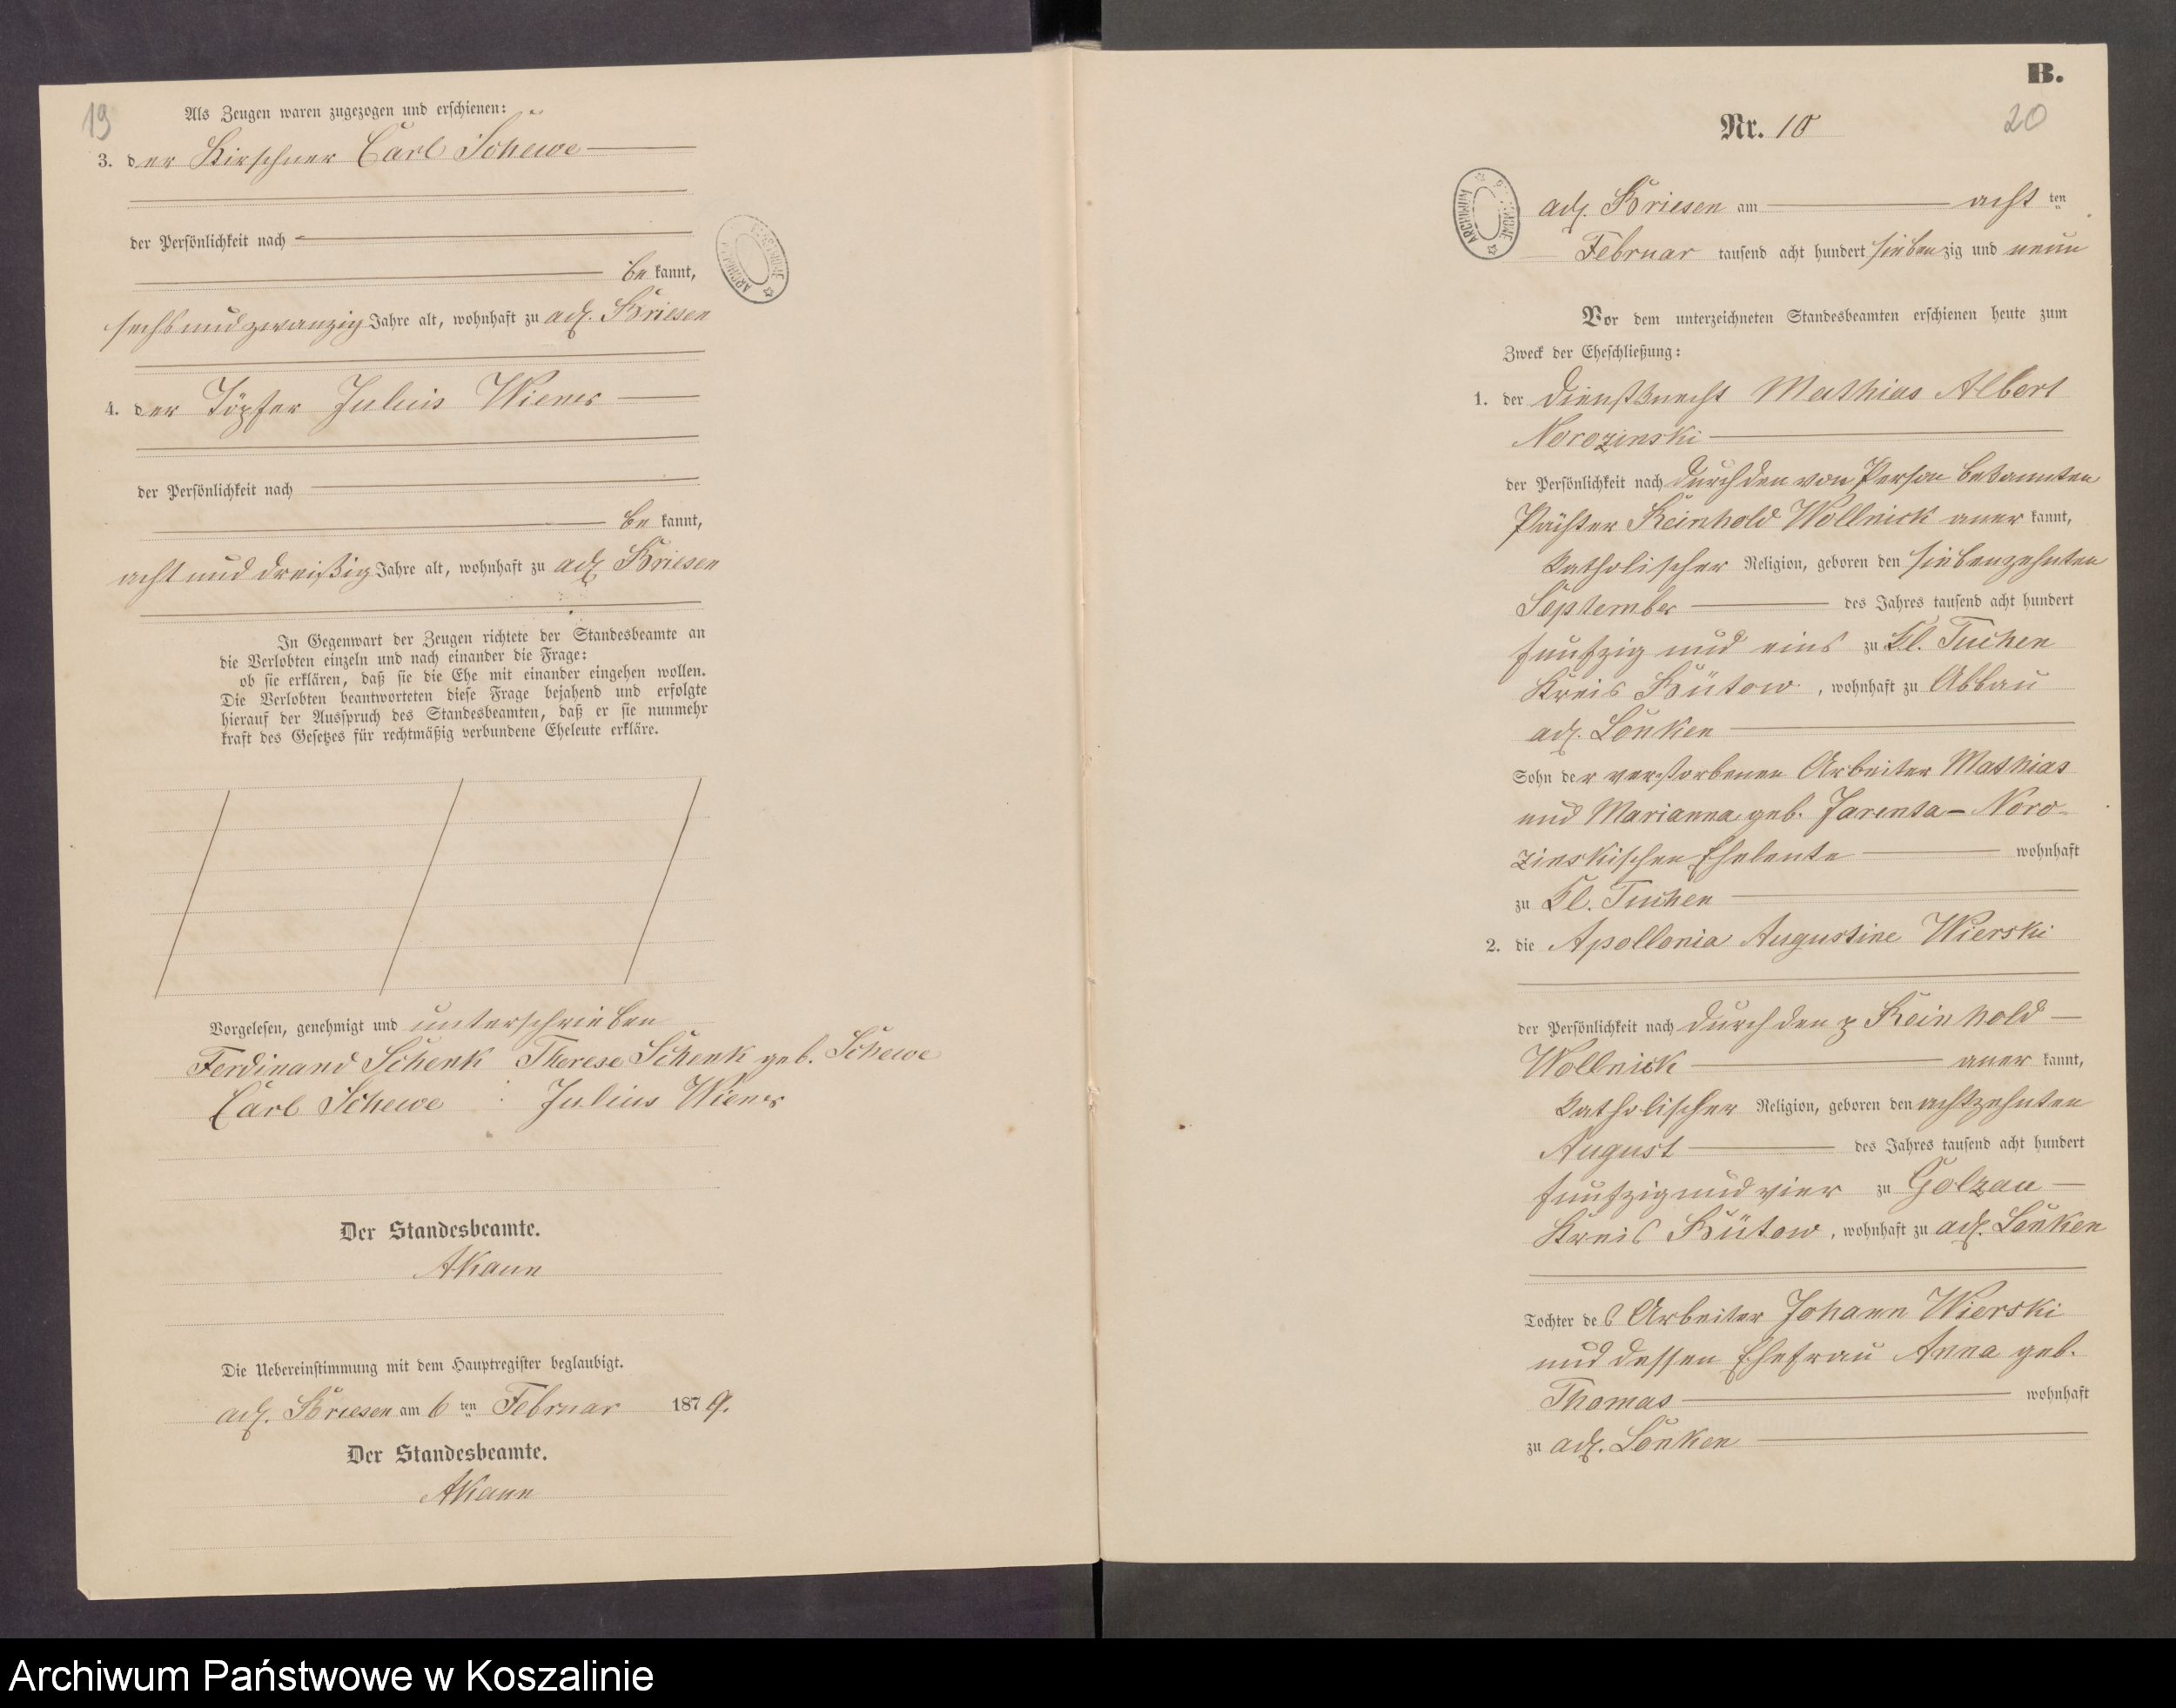 19
Als Zeugen waren zugezogen und erschienen:
3. der Kirschner Carl Schewe
der Persönlichkeit nach
be kannt,
sechsundzwanzig Jahre alt, wohnhaft zu adl. Briesen
4. der Töpfer Julius Wiener
der Persönlichkeit nach
be kannt,
acht und dreißig Jahre alt, wohnhaft zu adl. Briesen
In Gegenwart der Zeugen richtete der Standesbeamte an
die Verlobten einzeln und nach einander die Frage:
ob sie erklären, daß sie die Ehe mit einander eingehen wollen.
Die Verlobten beantworteten diese Frage bejahend und erfolgte
hierauf der Ausspruch des Standesbeamten, daß er sie nunmehr
kraft des Gesetzes für rechtmäßig verbundene Eheleute erkläre.
Vorgelesen, genehmigt und unterschrieben
Ferdinand Schenk Therese Schenk geb. Schewe
Carl Schewe Julius Wiener
Der Standesbeamte.
Die Uebereinstimmung mit dem Hauptregister beglaubigt.
adl. Briesen am 6 ten Februar 1879.
Der Standesbeamte.
B.
20
Nr. 10
adl. Briesen am acht ten
Februar tausend acht hundert siebenzig und neun
Vor dem unterzeichneten Standesbeamten erschienen heute zum
Zweck der Eheschließung:
1. der Dienstknecht Mathias Albert
Norozinski
der Persönlichkeit nach durch den von Person bekannten
Pächter Reinhold Wollnick aner kannt,
katholischer Religion, geboren den siebenzehnten
September des Jahres tausend acht hundert
funfzig und eins zu Kl. Tuchen
Kreis Bütow, wohnhaft zu Abbau
adl. Lonken
Sohn der verstorbenen Arbeiter Mathias
und Marianna geb. Jarenta- Noro-
zinskischen Eheleute wohnhaft
zu Kl. Tuchen
2. die Apollonia Augustine Wierski
der Persönlichkeit nach durch den p Reinhold
Wollnick aner kannt,
katholischer Religion, geboren den achtzehnten
August des Jahres tausend acht hundert
funfzig und vier zu Golzau
Kreis Bütow, wohnhaft zu adl. Lonken
Tochter des Arbeiter Johann Wierski
und dessen Ehefrau Anna geb.
Thomas wohnhaft
zu adl. Lonken
Archiwum Państwowe w Koszalinie